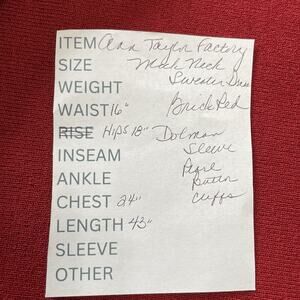 ITEM Ann Taylor Factory
SIZE Mock Neck
WEIGHT Sweater Dress
WAIST 16" Brick Red
RISE Hips 18" Dolman
INSEAM Sleeve
ANKLE Pearl Button
CHEST 24" Cuffs
LENGTH 43"
SLEEVE
OTHER